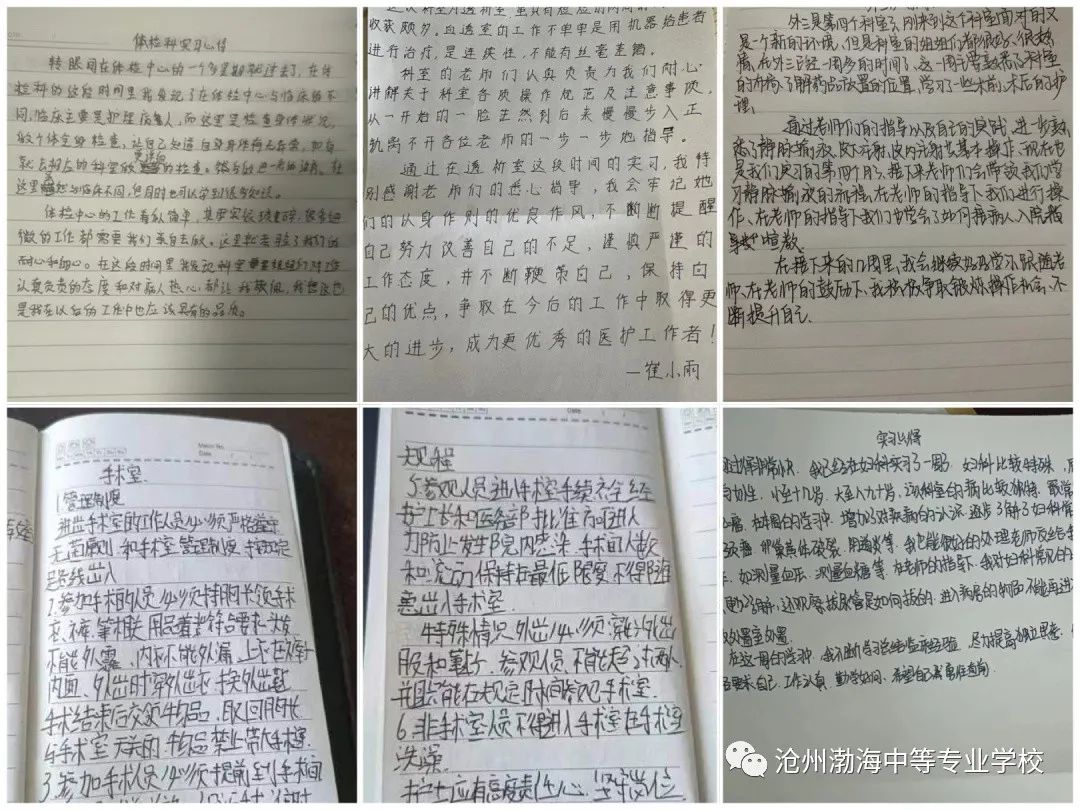 体检科实习心得
转眼间在体检中心的一个多星期就过去了,在体
检科的这段时间里我发现了在体检中心与临床的不
同,临床主要是护理病人,而这里是检查身体状况,
做个体全的检查,让自己知道自身身体有无各异,如有
就去相应的科室做的检查。然后做进一步的治疗。在
这里虽然与临床不同,但同时也可以学到很多知识。
体检中心的工作看似简单,其实实较琐碎,很多细
微的工作都需要我们亲自去做。这里就考验了我们的
耐心和细心。在这段时间里我发现科里姐姐们对工作
认真负责的态度和对病人热心都让我敬佩,我想这也
是我在以后的工作中也应该具有的品质。
收获颇多。血透室的工作不单单是用机器给患者
进行治疗,是连续性,不能有丝毫差错。
科室的老师们认真负责为我们耐心
讲解关于科室各质操作规范及注意事项,
从一开始的一脸茫然到后来慢慢步入正
轨离不开各位老师的一步一步地指导。
通过在透析室这段时间的实习,我特
别感谢老师们的悉心指导,我会牢记她
们的以身作则的优良作风,不断断提醒
自己努力改善自己的不足,谨慎严谨的
工作态度,并不断鞭策自己,保持向
己的优点,争取在今后的工作中取得更
大的进步,成为更优秀的医护工作者!
—崔小雨
外三是第四个科室了,刚来到这个科室面对的又
是一个新的环境,但是科室的姐姐们都很好、很热
情,在外三已经一周多的时间了,这一周主要熟悉了科室
的布局,了解药品放置的位置,学习了一些术前、术后的护
理。
通过老师们的指导以及自己的实践,进一步熟
悉了静脉输液、皮下注射、皮内注射等基本操作,现在也
是我们实习的第四个月了,接下来老师们会带领我们学
习静脉输液的流程,在老师的指导下我们进行操
作,在老师的指导下我们也学会了如何再新人入院宿
宣教。
在接下来的几周里,我会继续好好学习跟随老
师,在老师的鼓励下,我积极争取锻炼操作机会,不
断提升自己。
手术室
1.管理制度
进进手术室的工作人员必须严格遵守
无菌原则和手术室管理制度,按规定
路线出入
2.参加手术的人员必须持胸卡领手术
衣、裤、等相关用品着装符合要求:头发
不能外露、内衣不能外漏、上衣在裤子
内面、外出时穿外出衣、换外出鞋
手术结束后交领物品,取回胸卡
与手术室无关的物品禁止带入手术室。
3.参加手术人员必须提前到手术间
规程
5.参观人员进入手术室手续齐全经
护工长和医务部批准方可进入
为防止发生院内感染,手术间人数
和流动保持在最低限度不得随
意出入手术室.
4特殊情况外出必须:穿外出
服和鞋子、参观人员、不能超过两人
并且只能在规定时间参观手术室.
6.非手术室人员不得进入手术室在手术室
洗澡.
护士应有高度责任心、坚守岗位
实习心得
我已经在妇科实习了一周,妇科比较特殊,
小至十几岁,大至八九十岁,该科室的病比较独特,最常
在本周的学习中,增加了对疾病的认识,逐步了解了妇科常
黄体破裂,阴道炎等,我也能很好的处理老师交给
如测量血压,测量血糖等,在老师的指导下,我对妇科常见的
了解,还观察拔尿管是如何拔的,进入病房的物品不能再进
处置室处置.
在这一周的学习中,我不断学习总结临床经验,尽力提高独立思考,
要求自己,工作认真,勤学好问,希望自己
沧州渤海中等专业学校